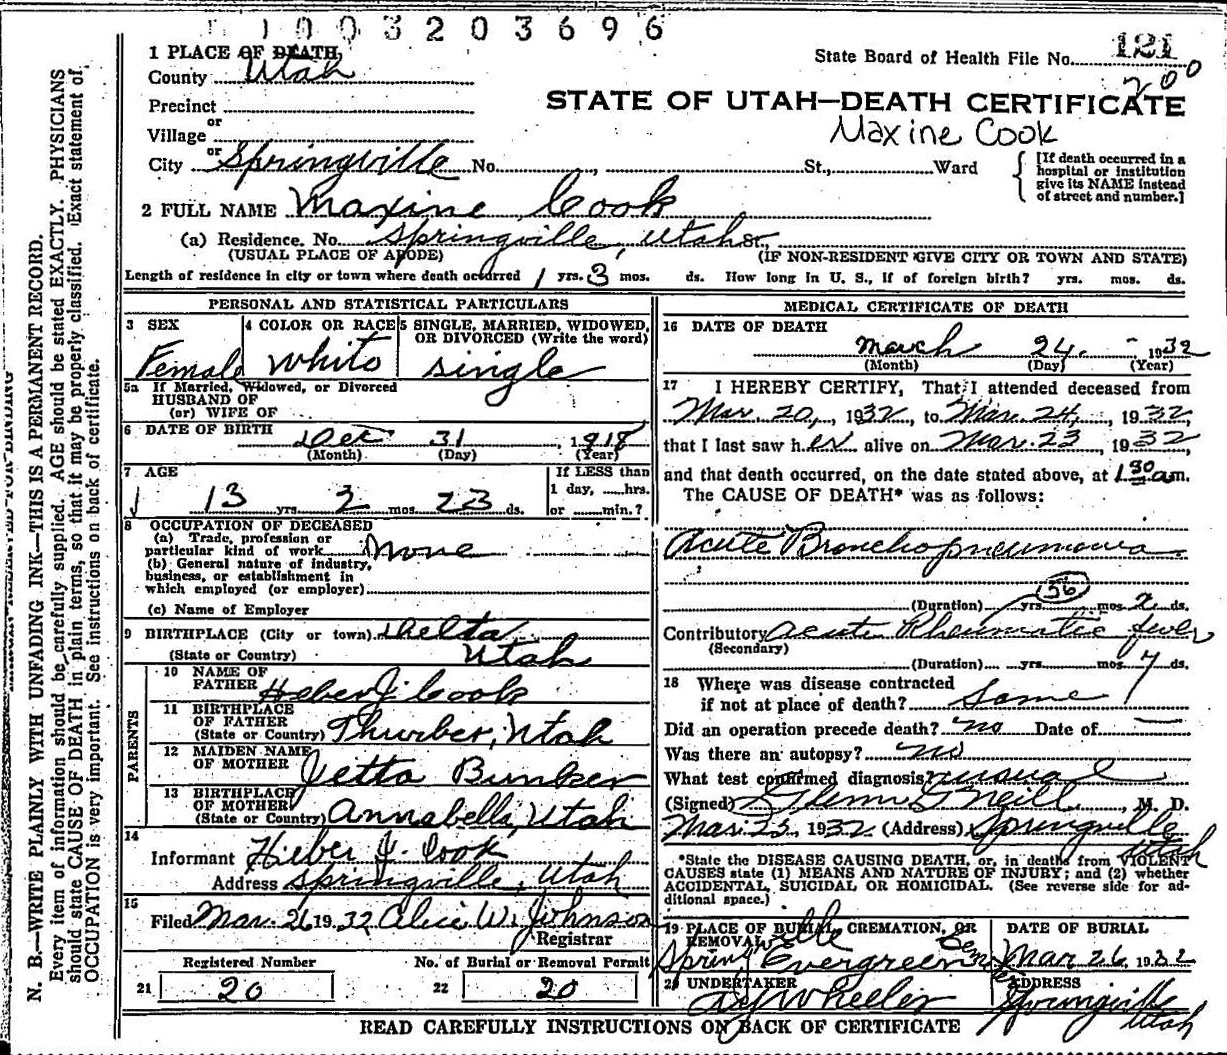 1003203696
1 PLACE OF DEATH
County Utah
State Board of Health File No. 121
200
Precinct
or
STATE OF UTAH—DEATH CERTIFICATE
Village
Maxine Cook
or
City Springville No. , St., Ward
[If death occurred in a
hospital or institution
give its NAME instead
of street and number.]
2 FULL NAME Maxine Cook
(a) Residence. No. Springville, Utah St.,
(USUAL PLACE OF ABODE) (IF NON-RESIDENT GIVE CITY OR TOWN AND STATE)
Length of residence in city or town where death occurred 1 yrs. 3 mos. ds. How long in U. S., if of foreign birth? yrs. mos. ds.
PERSONAL AND STATISTICAL PARTICULARS
3 SEX
Female
4 COLOR OR RACE
White
5 SINGLE, MARRIED, WIDOWED,
OR DIVORCED (Write the word)
single
5a If Married, Widowed, or Divorced
HUSBAND OF
(or) WIFE OF
6 DATE OF BIRTH
Dec 31, 1918
(Month) (Day) (Year)
7 AGE
13 yrs. 2 mos. 23 ds.
If LESS than
1 day, hrs.
or min.?
8 OCCUPATION OF DECEASED
(a) Trade, profession or
particular kind of work None
(b) General nature of industry,
business, or establishment in
which employed (or employer)
(c) Name of Employer
9 BIRTHPLACE (City or town) Delta
(State or Country) Utah
PARENTS
10 NAME OF
FATHER Heber J. Cook
11 BIRTHPLACE
OF FATHER
(State or Country) Thurber, Utah
12 MAIDEN NAME
OF MOTHER Jetta Bunker
13 BIRTHPLACE
OF MOTHER
(State or Country) Annabella, Utah
14
Informant Hieber J. Cook
Address Springville, Utah
15
Filed Mar. 26 1932 Alice W. Johnson
Registrar
Registered Number No. of Burial or Removal Permit
21 20 22 20
MEDICAL CERTIFICATE OF DEATH
16 DATE OF DEATH
March 24. - 1932
(Month) (Day) (Year)
17 I HEREBY CERTIFY, That I attended deceased from
Mar. 20, 1932, to Mar. 24, 1932,
that I last saw her alive on Mar. 23, 1932,
and that death occurred, on the date stated above, at 1 30 am.
The CAUSE OF DEATH* was as follows:
Acute Bronchopneumonia
56
(Duration) yrs. mos. 2 ds.
Contributory Acute Rheumatic fever
(Secondary)
(Duration) yrs. mos. 7 ds.
18 Where was disease contracted
if not at place of death? Same
Did an operation precede death? no Date of —
Was there an autopsy? no
What test confirmed diagnosis?
(Signed) Glenn S Neill, M. D.
Mar. 25, 1932 (Address) Springville
Utah
*State the DISEASE CAUSING DEATH, or, in deaths from VIOLENT
CAUSES state (1) MEANS AND NATURE OF INJURY; and (2) whether
ACCIDENTAL, SUICIDAL OR HOMICIDAL. (See reverse side for ad-
ditional space.)
19 PLACE OF BURIAL, CREMATION, OR
REMOVAL
Springville Evergreen Cem
DATE OF BURIAL
Mar 26, 1932
20 UNDERTAKER
Wheeler
ADDRESS
Springville
Utah
READ CAREFULLY INSTRUCTIONS ON BACK OF CERTIFICATE
N. B.—WRITE PLAINLY WITH UNFADING INK—THIS IS A PERMANENT RECORD.
Every item of information should be carefully supplied. AGE should be stated EXACTLY. PHYSICIANS
should state CAUSE OF DEATH in plain terms, so that it may be properly classified. Exact statement of
OCCUPATION is very important. See instructions on back of certificate.